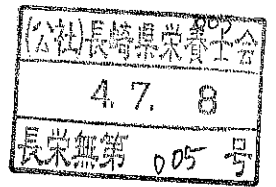 (公社)長崎県栄養士会
4. 7. 8
長栄無第 005 号